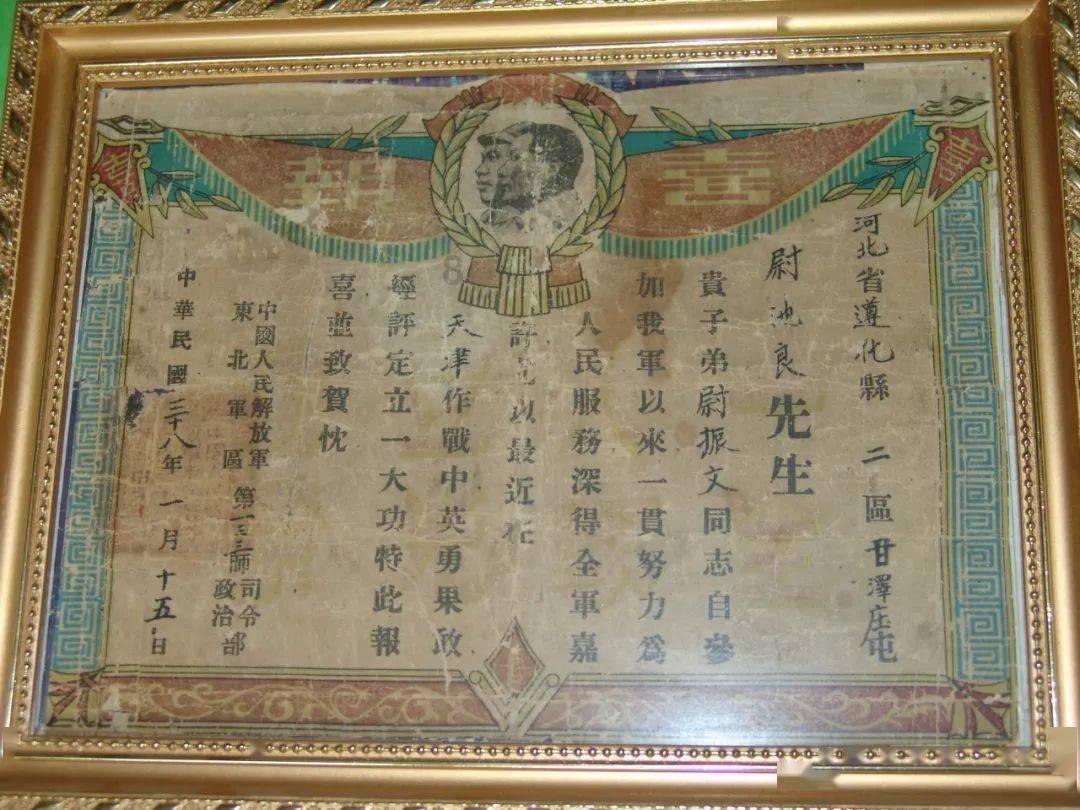 喜報
喜
喜
河北省遵化縣 二區甘澤庄屯
尉池良先生
貴子弟尉振文同志自參
加我軍以來一貫努力為
人民服務深得全軍嘉
許 以最近在
天津作戰中英勇果敢
經評定立一大功特此報
喜並致賀忱
中國人民解放軍
東北軍區 第一三三師 司令
政治部
中華民國三十八年 一月 十五日
8